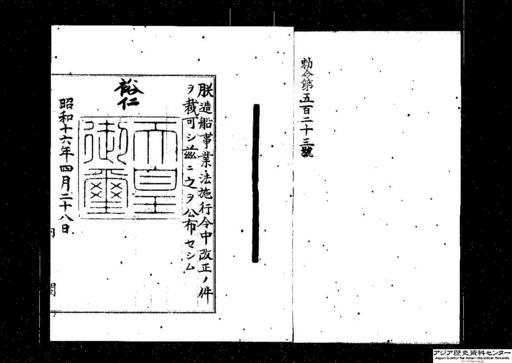 勅令第五百二十三號
朕造船事業法施行令中改正ノ件
ヲ裁可シ茲ニ之ヲ公布セシム
裕仁
天皇
御璽
昭和十六年四月二十八日
アジア歴史資料センター